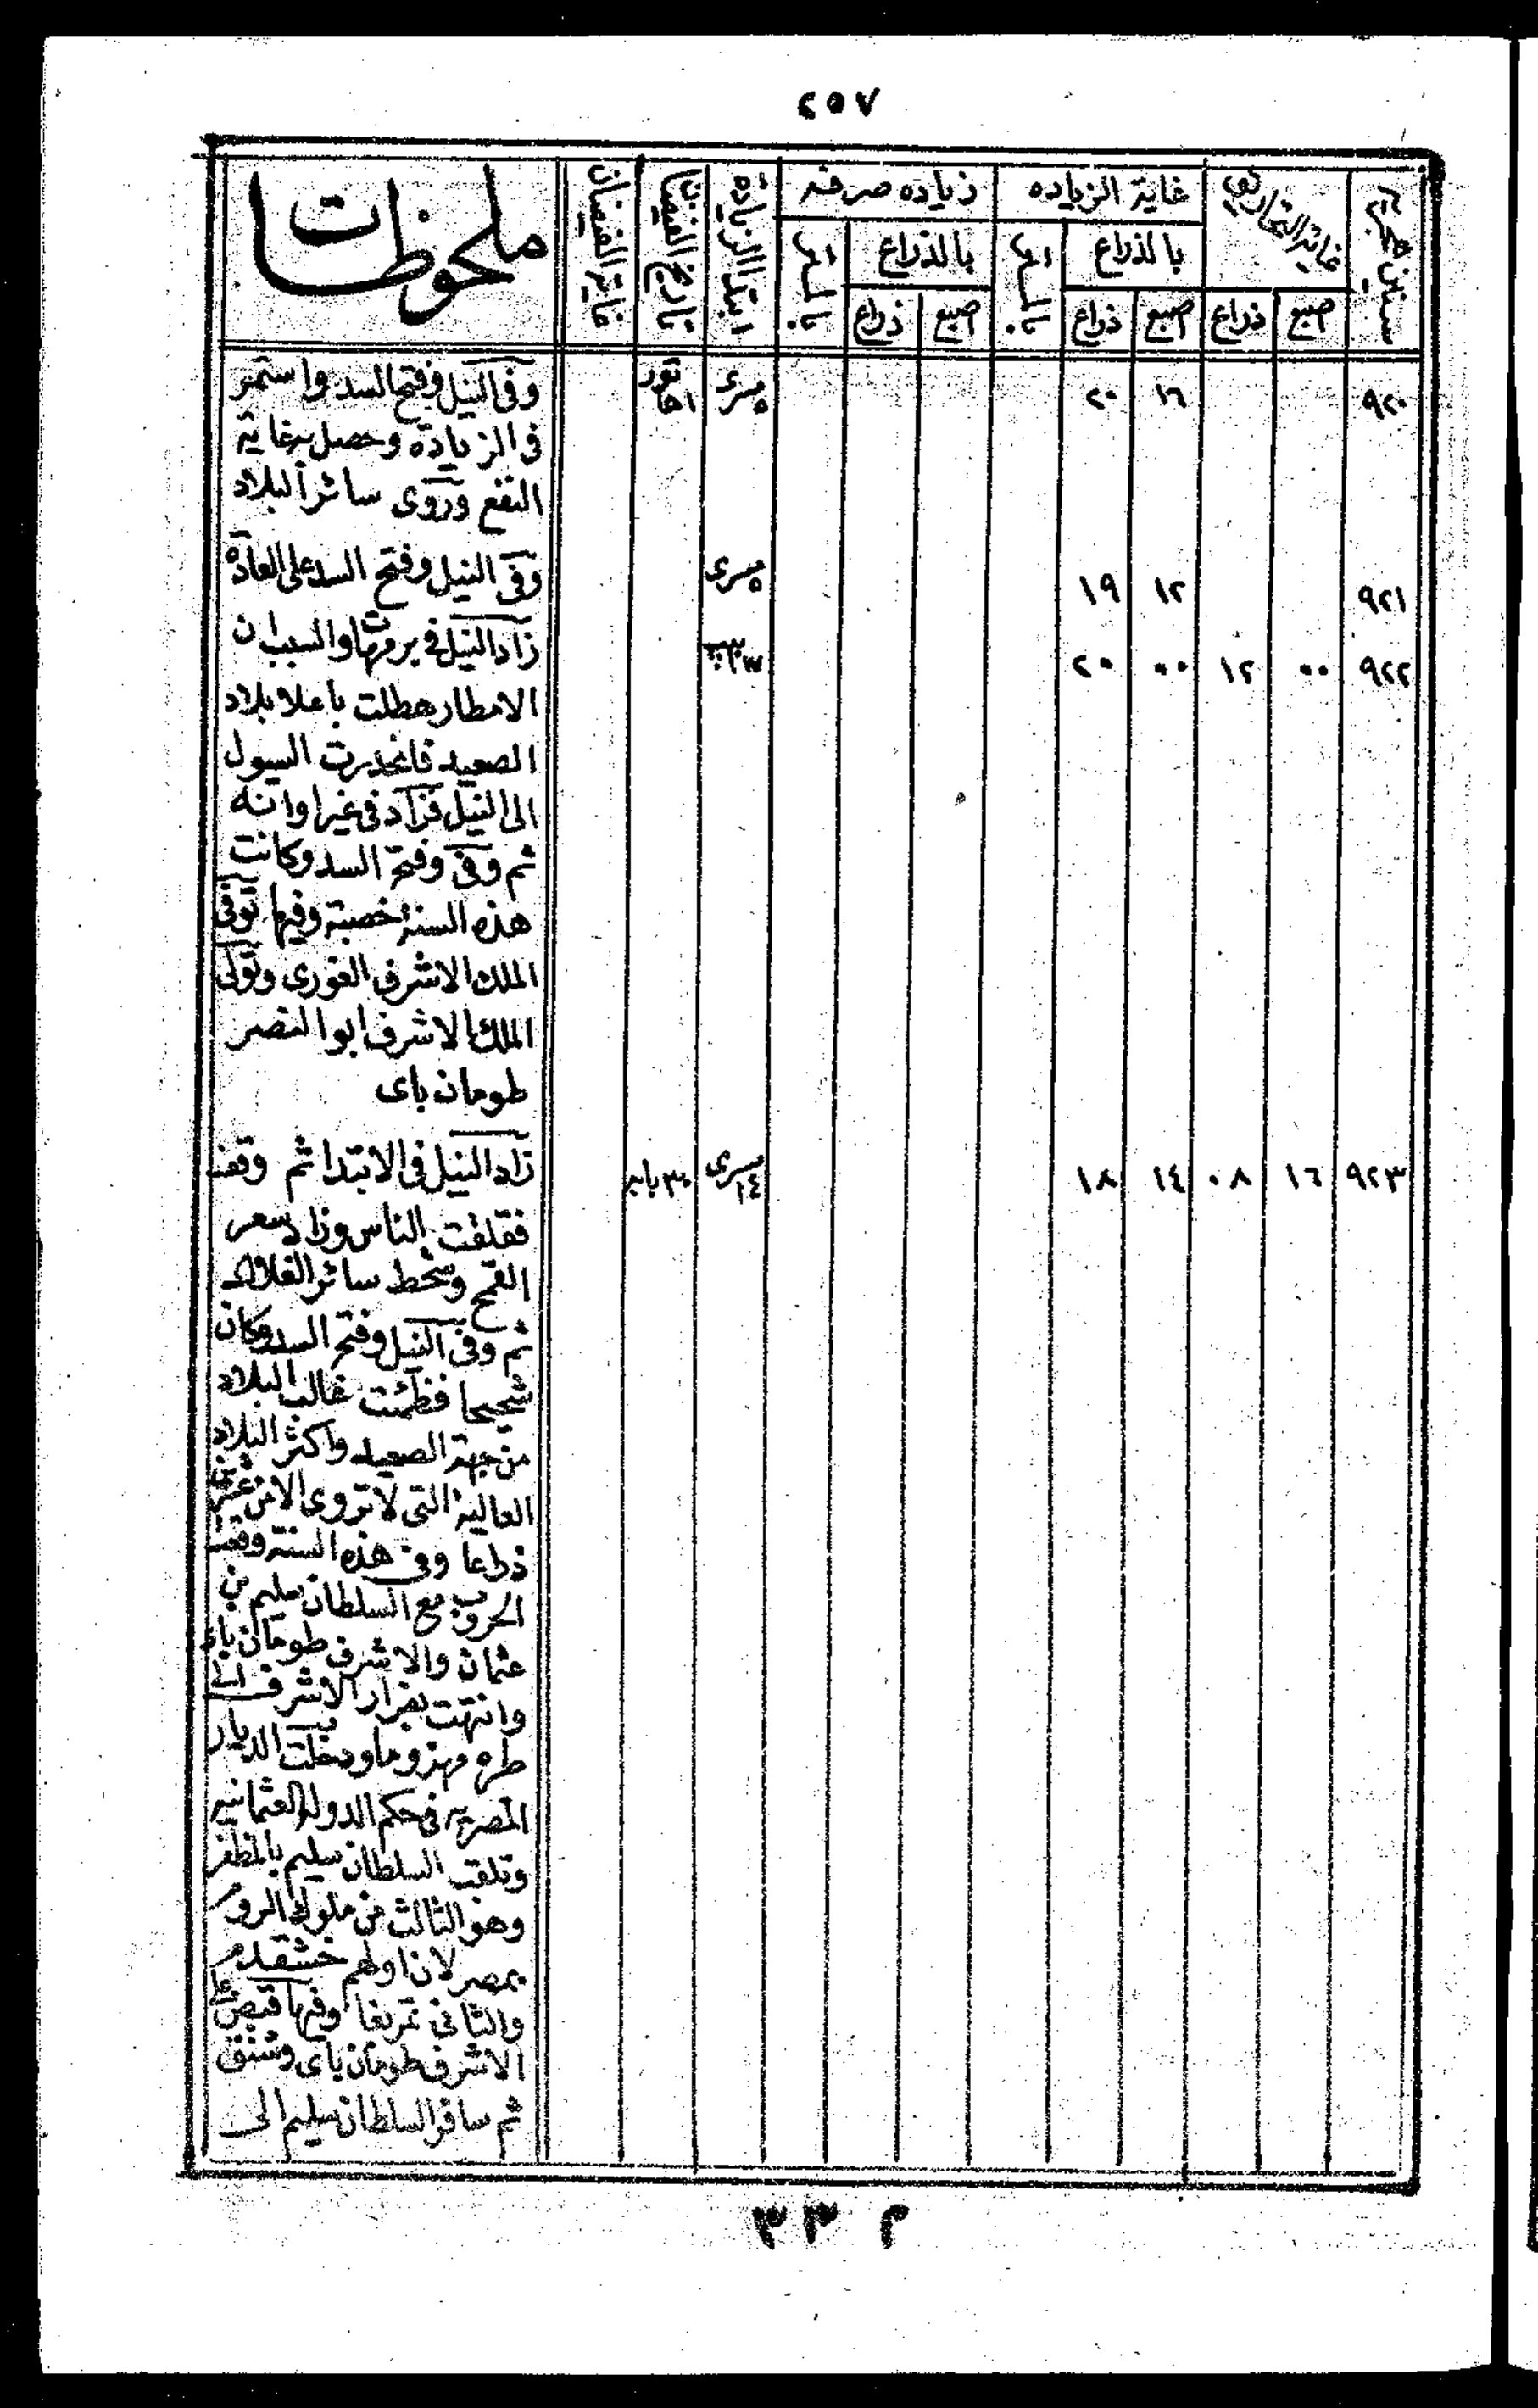 ٢٥٧
سنين هجرية
غاية التحاريق
غاية الزياده
زياده صرفه
ابتدا الزيادة
تاريخ الفيضان
غاية الفيضان
ملحوظات
بالذراع
بالمتر
بالذراع
بالمتر
اصبع ذراع اصبع ذراع اصبع ذراع
٩٢٠ ١٦ ٢٠ ٥ مسرى
وفى النيل وفتح السد واستمر
فى الزيادة وحصل به غاية
النفع وروى سائر البلاد
٩٢١ ١٢ ١٩ ٥ مسرى
وفى النيل وفتح السد على العادة
٩٢٢ ٠٠ ١٢ ٠٠ ٢٠
زاد النيل فى برمهات والسبب ان
الامطار هطلت باعلا بلاد
الصعيد فانحدرت السيول
الى النيل فزاد فى غير اوانه
ثم وفى وفتح السد وكانت
هذه السنة خصبة وفيها توفى
الملك الاشرف الغورى وتولى
الملك الاشرف ابو النصر
طومان باى
٩٢٣ ١٦ ٠٨ ١٤ ١٨ ١٤ مسرى ٣٠ بابه
زاد النيل فى الابتدا ثم وقف
فقلقت الناس وزاد سعر
القمح وشحط سائر الغلال
ثم وفى النيل وفتح السد وكان
شحيحا فظمئت غالب البلاد
من جهة الصعيد واكثر البلاد
العالية التى لا تروى الا من عشرين
ذراعا وفى هذه السنة وقعت
الحروب مع السلطان سليم بن
عثمان والاشرف طومان باى
وانتهت بفرار الاشرف الى
طره مهزوما ودخلت الديار
المصرية فى حكم الدولة العثمانية
وتلقب السلطان سليم بالمظفر
وهو الثالث من ملوك الروم
بمصر لان اولهم خشقدم
والثانى تمربغا وفيها قبض على
الاشرف طومان باى وشنق
ثم سافر السلطان سليم الى
م ٣٣